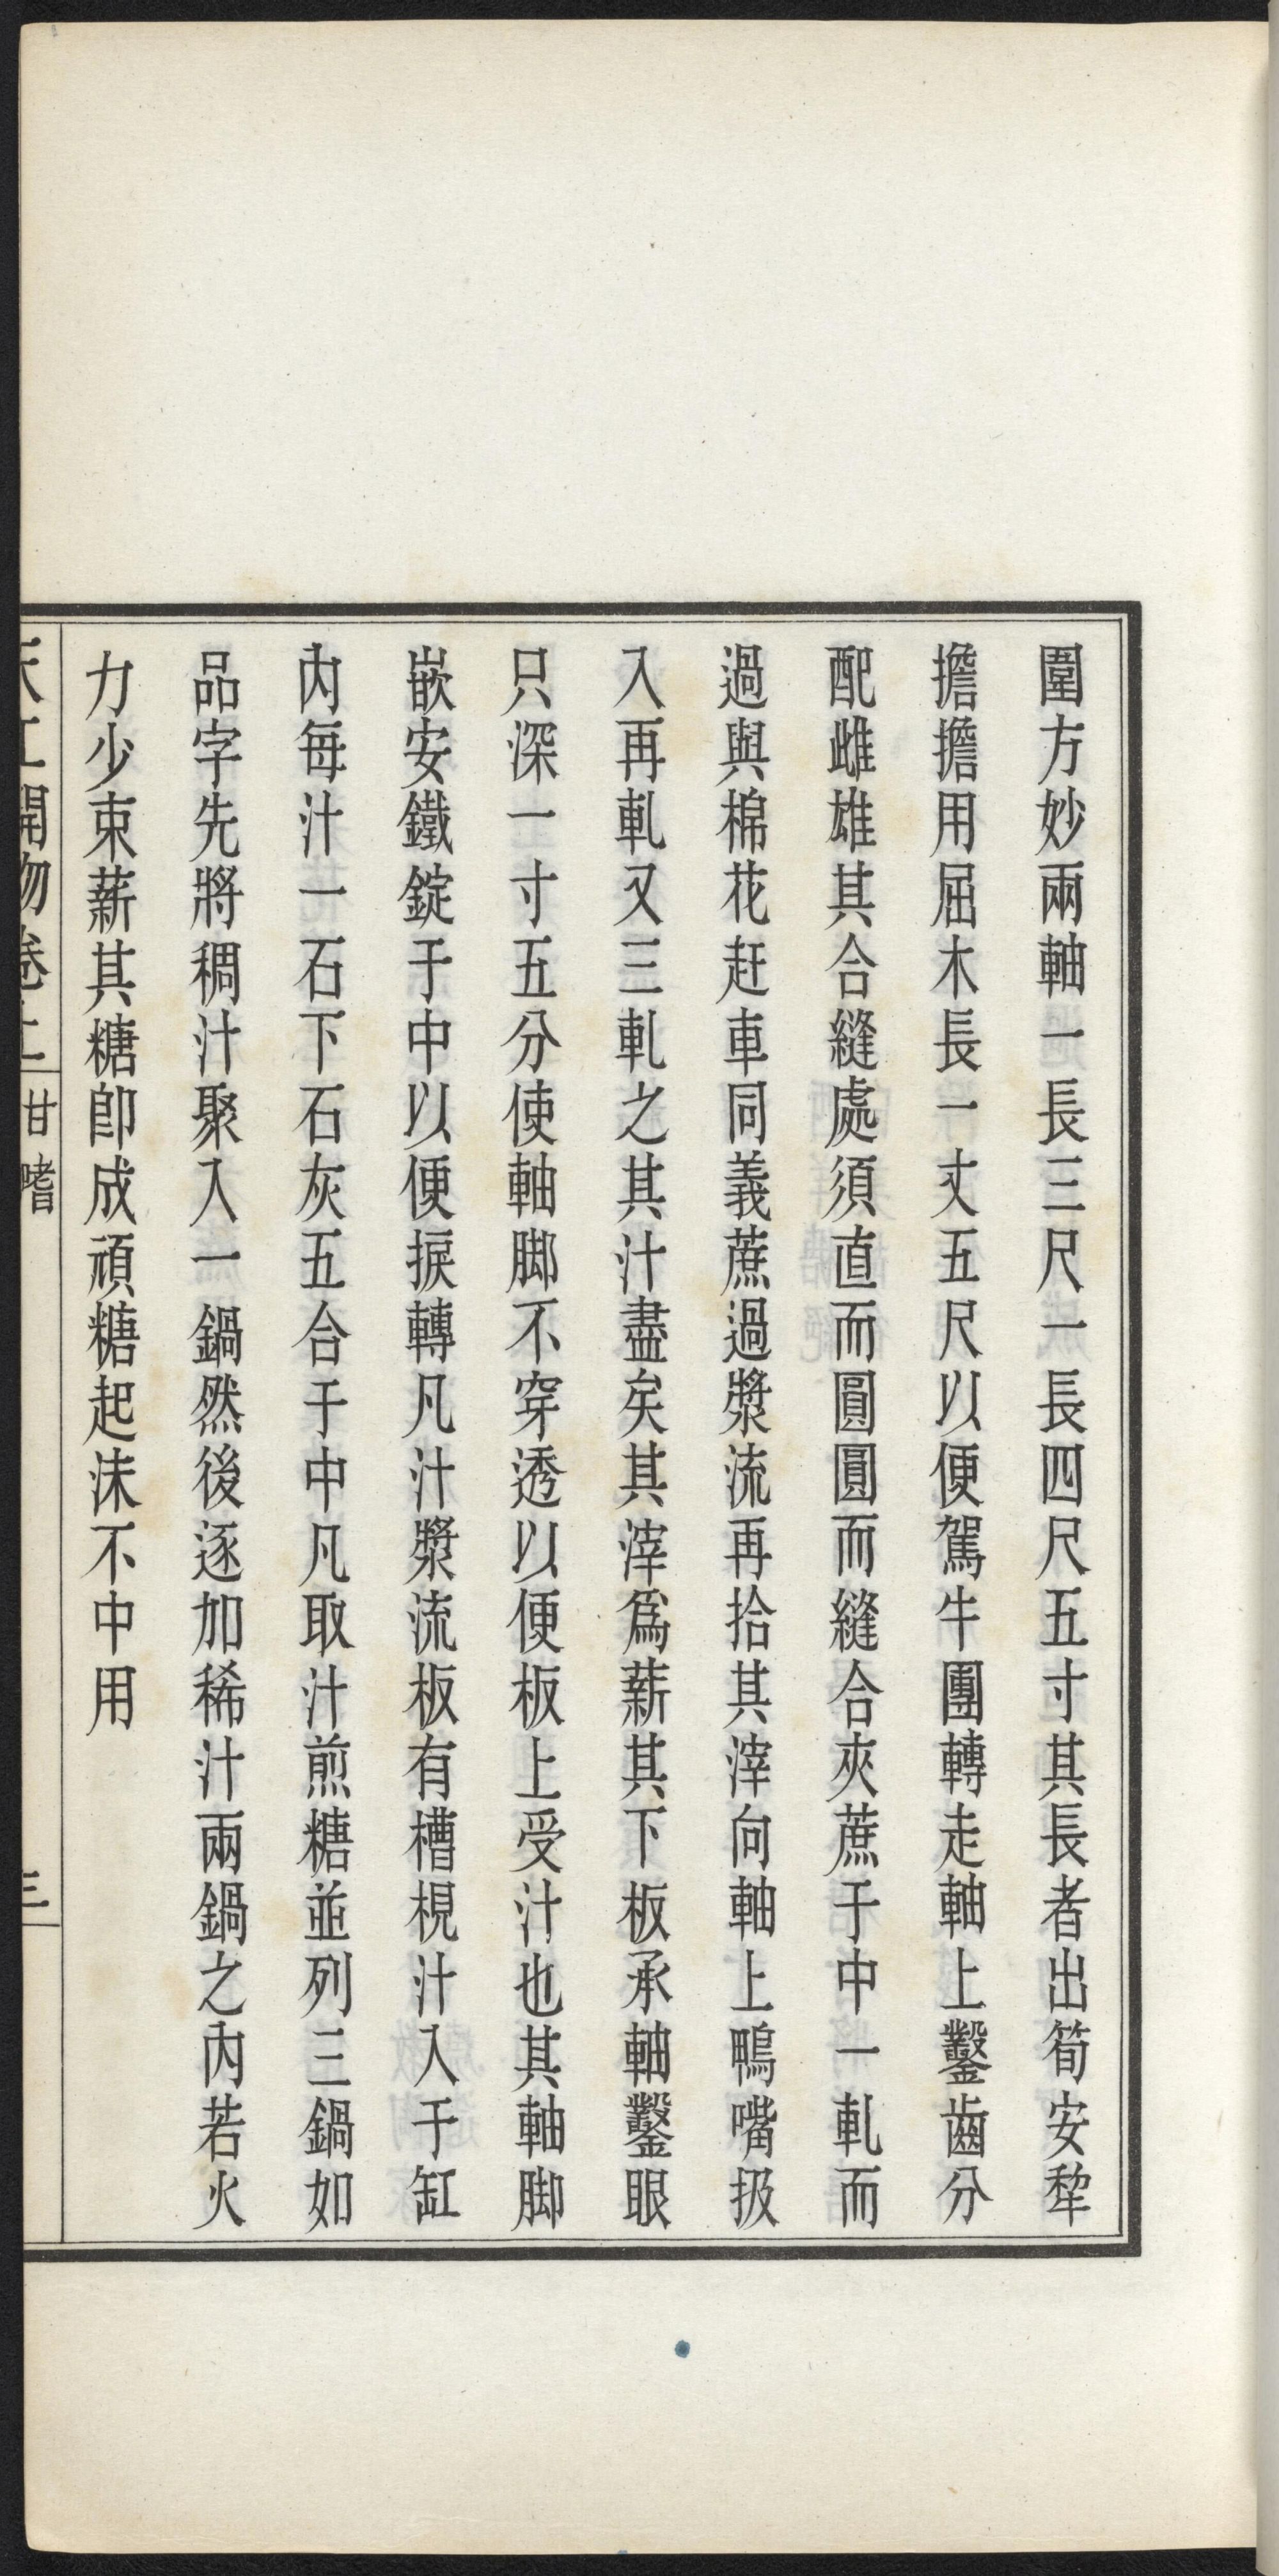 圍方妙兩軸一長三尺一長四尺五寸其長者出筍安犂
擔擔用屈木長一丈五尺以便駕牛團轉走軸上鑿齒分
配雌雄其合縫處須直而圓圓而縫合夾蔗于中一軋而
過與棉花赶車同義蔗過漿流再拾其滓向軸上鴨嘴扱
入再軋又三軋之其汁盡矣其滓爲薪其下板承軸鑿眼
只深一寸五分使軸脚不穿透以便板上受汁也其軸脚
嵌安鐵錠于中以便捩轉凡汁漿流板有槽梘汁入于缸
內每汁一石下石灰五合于中凡取汁煎糖並列三鍋如
品字先將稠汁聚入一鍋然後逐加稀汁兩鍋之內若火
力少束薪其糖卽成頑糖起沫不中用
天工開物卷上 甘嗜 三